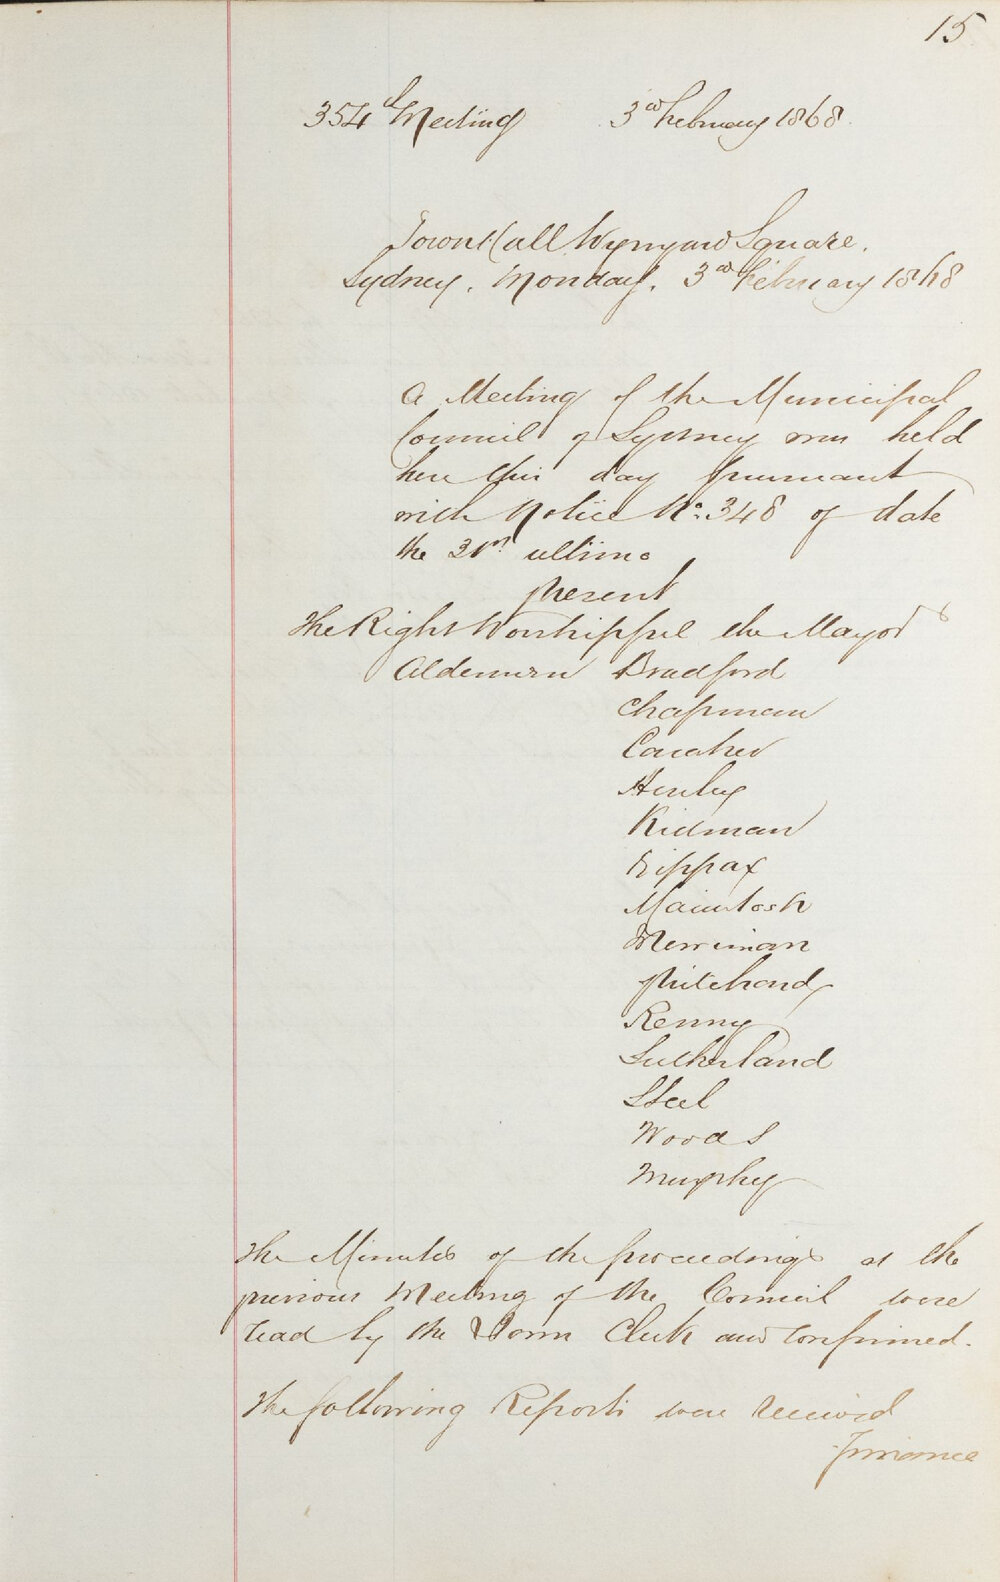 15
354th Meeting 3rd February 1868.
Town Hall Wynyard Square.
Sydney. Monday. 3rd February 1868
A Meeting of the Municipal
Council of Sydney was held
here this day pursuant
with Notice No. 348 of date
the 31st ultimo
present
The Right Worshipful the Mayor &
Aldermen Bradford
Chapman
Caraher
Hurley
Kidman
Kippax
Macintosh
Merriman
Pritchard
Renny
Sutherland
Steel
Woods
Murphy
The Minutes of the proceedings at the
previous Meeting of the Council were
read by the Town Clerk and confirmed.
The following Reports were received
Finance